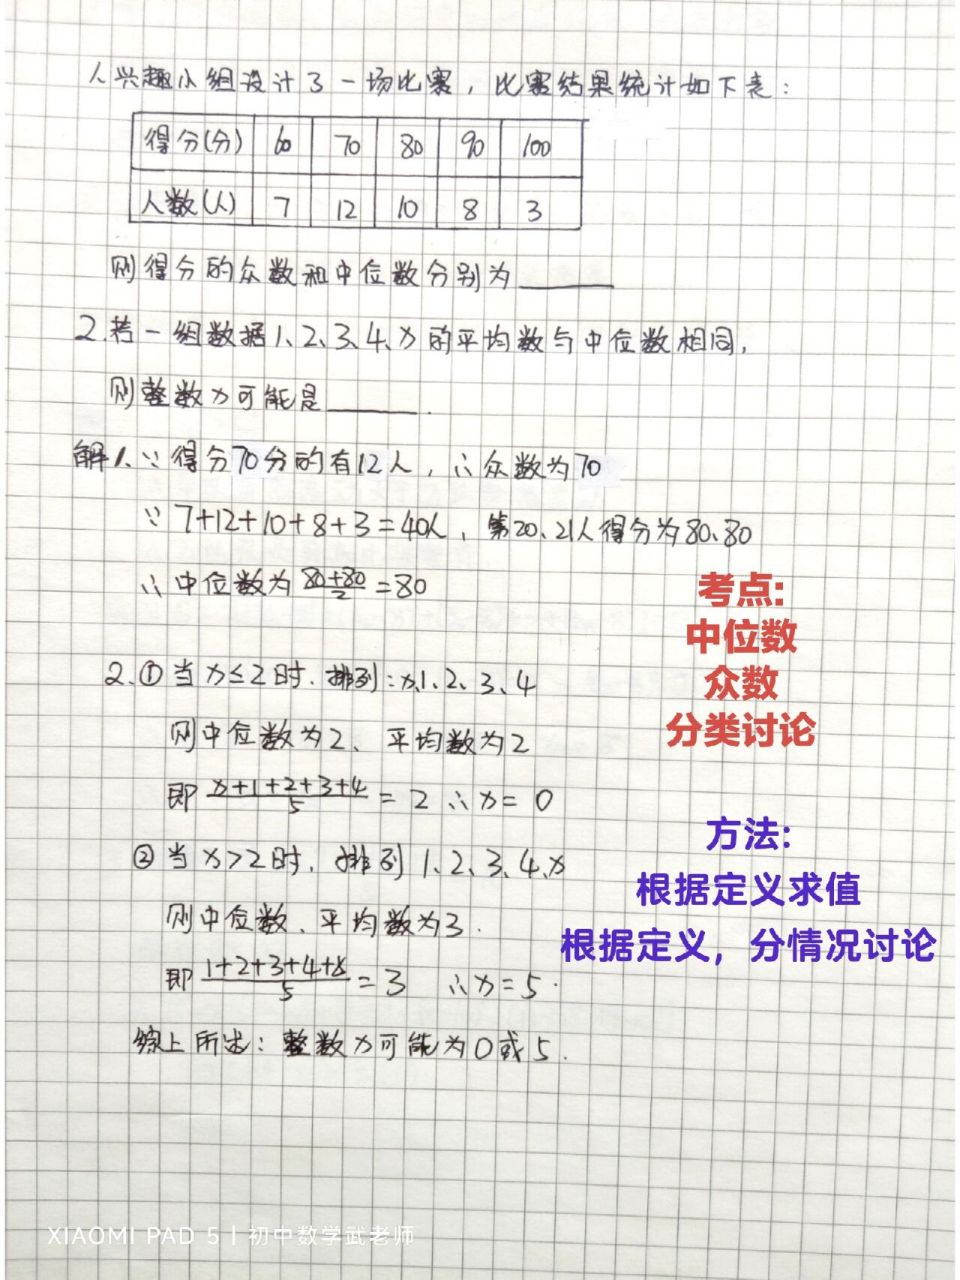 1.兴趣小组设计了一场比赛，比赛结果统计如下表：
得分(分) 60 70 80 90 100
人数(人) 7 12 10 8 3
则得分的众数和中位数分别为______
2.若一组数据1、2、3、4、x的平均数与中位数相同，
则整数x可能是______.
解1.∵得分70分的有12人，∴众数为70
∵7+12+10+8+3=40人，第20、21人得分为80、80
∴中位数为(80+80)/2=80
考点:
中位数
众数
分类讨论
2.①当x≤2时.排列:x、1、2、3、4
则中位数为2、平均数为2
即(x+1+2+3+4)/5=2 ∴x=0
②当x>2时，排列1、2、3、4、x
则中位数、平均数为3.
即(1+2+3+4+x)/5=3 ∴x=5.
综上所述：整数x可能为0或5.
方法:
根据定义求值
根据定义，分情况讨论
XIAOMI PAD 5 | 初中数学武老师